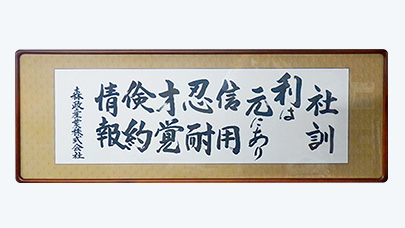 社訓
利は
元にあり
信用
忍耐
才覚
倹約
情報
森政産業株式会社